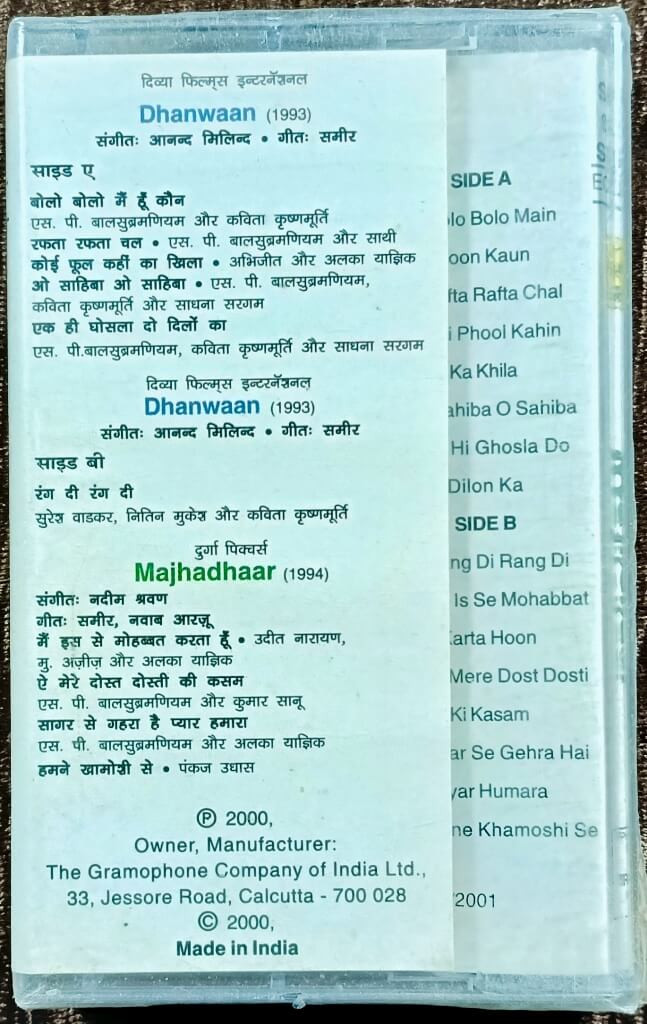 दिव्या फिल्म्स इन्टरनॅशनल
Dhanwaan (1993)
संगीतः आनन्द मिलिन्द • गीतः समीर
साइड ए
बोलो बोलो मैं हूँ कौन
एस. पी. बालसुब्रमणियम और कविता कृष्णमूर्ति
रफता रफता चल • एस. पी. बालसुब्रमणियम और साथी
कोई फूल कहीं का खिला • अभिजीत और अलका याज्ञिक
ओ साहिबा ओ साहिबा • एस. पी. बालसुब्रमणियम,
कविता कृष्णमूर्ति और साधना सरगम
एक ही घोसला दो दिलों का
एस. पी.बालसुब्रमणियम, कविता कृष्णमूर्ति और साधना सरगम
दिव्या फिल्म्स इन्टरनॅशनल
Dhanwaan (1993)
संगीतः आनन्द मिलिन्द • गीतः समीर
साइड बी
रंग दी रंग दी
सुरेश वाडकर, नितिन मुकेश और कविता कृष्णमूर्ति
दुर्गा पिक्चर्स
Majhadhaar (1994)
संगीतः नदीम श्रवण
गीतः समीर, नवाब आरज़ू
मैं इस से मोहब्बत करता हूँ • उदीत नारायण,
मु. अज़ीज़ और अलका याज्ञिक
ऐ मेरे दोस्त दोस्ती की कसम
एस. पी. बालसुब्रमणियम और कुमार सानू
सागर से गहरा है प्यार हमारा
एस. पी. बालसुब्रमणियम और अलका याज्ञिक
हमने खामोशी से • पंकज उधास
Ⓟ 2000,
Owner, Manufacturer:
The Gramophone Company of India Ltd.,
33, Jessore Road, Calcutta - 700 028
© 2000,
Made in India
SIDE A
lo Bolo Main
oon Kaun
fta Rafta Chal
i Phool Kahin
Ka Khila
ahiba O Sahiba
Hi Ghosla Do
Dilon Ka
SIDE B
ng Di Rang Di
Is Se Mohabbat
Karta Hoon
Mere Dost Dosti
Ki Kasam
ar Se Gehra Hai
yar Humara
ne Khamoshi Se
/2001